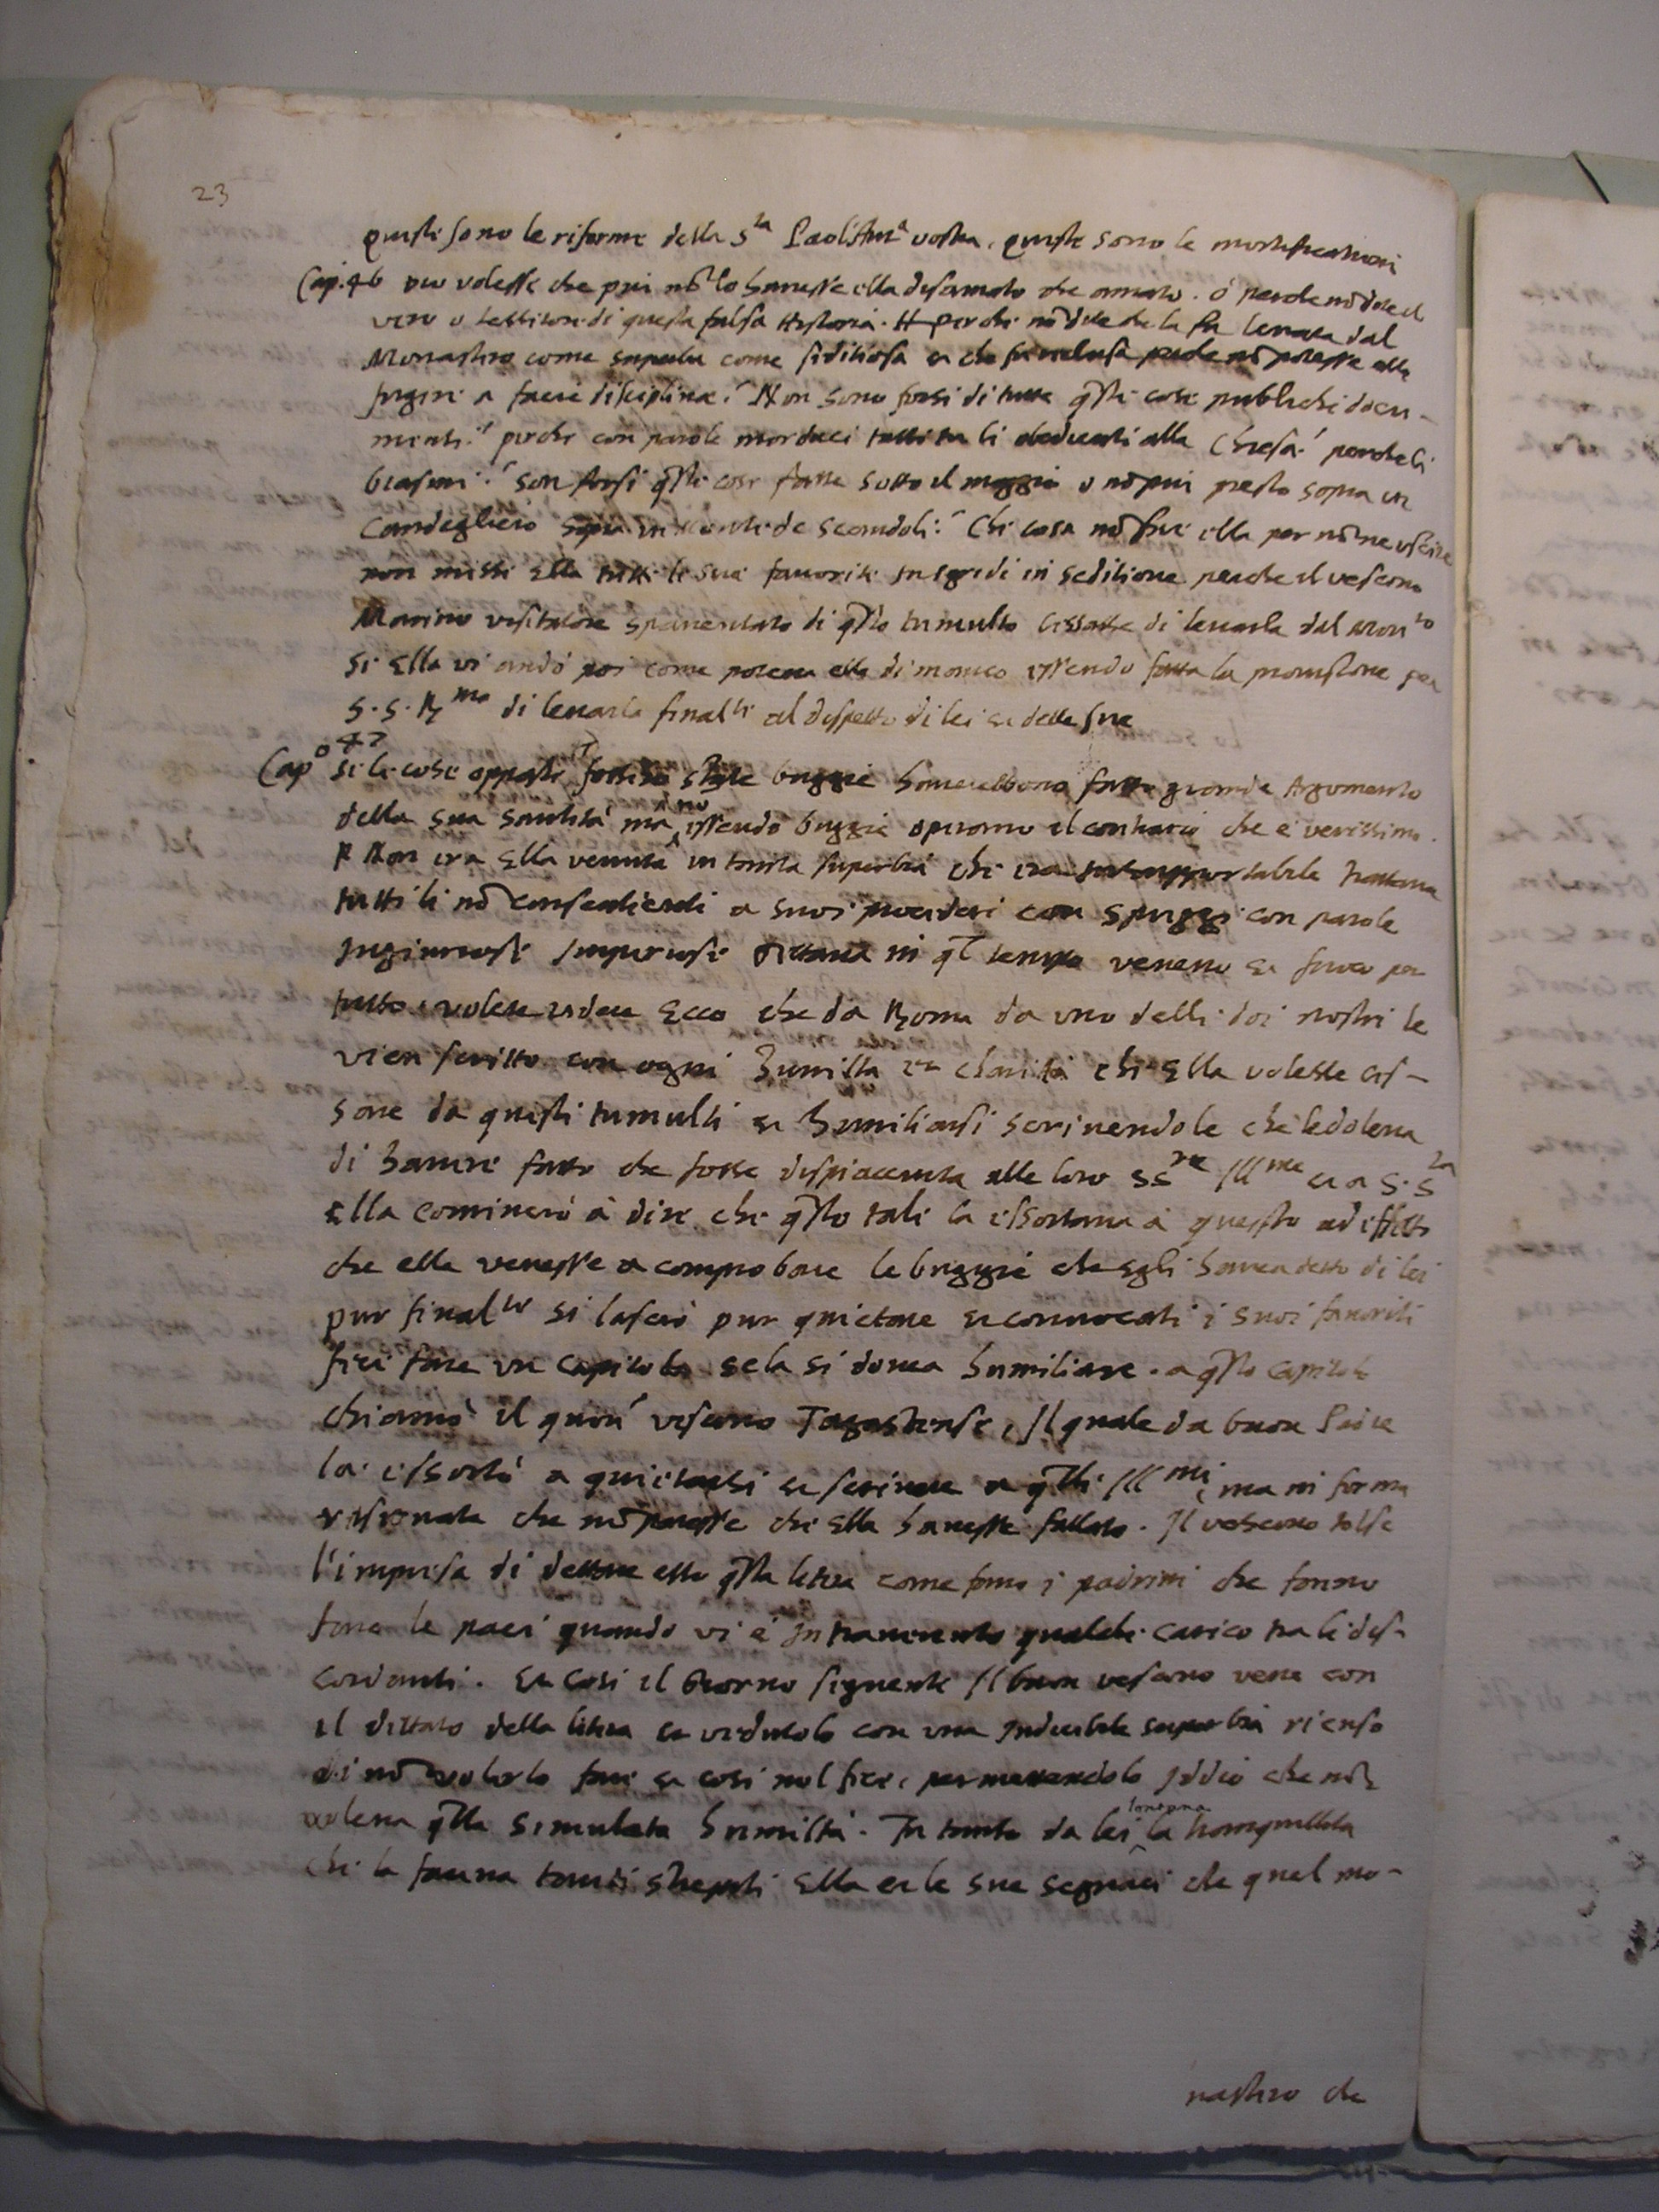 23
questi sono le riforme della S.ta Paolistina vostra, queste sono le mortificationi
Cap. 46 Dio volesse che più nõ lo havesse ella desarmato che armato. ò perche nõ dite el
vero o testitore di questa falsa Historia. perche nõ dite che la fu levata dal
Monastero come superba come seditiosa et che fu reclusa perche nõ potesse ella
fugire a farui disciplina? Non sono forsi di tutte q̃ste cose publichi docu-
menti? perche con parole mordaci tassi tu li obedienti alla Chiesa? perche li
biasmi? son forsi q̃ste cose fatte sotto il moggio o nõ più presto sopra un
candegliero sopra un monte de scandoli? Che cosa nõ fece ella per nõ ne uscire
non missi ella tutti le sue favorite insgredi in seditione perche il vescovo
Marino visitatore spaventato di q̃sto tumulto cessasse di levarla dal mon.to
Si ella vi andò poi come poteva ella di manco essendo fatta la provisione per
S. S. R.ma di levarla final.te al dispetto di lei et delle sue
Cap.o 47
si le cose opposte fossino state buggie haverebbono fatto grande Argomento
della sua santità ma nõ essendo buggie operorno il contrario che è verissimo.
Non era ella venuta in tanta superbia che era insupportabile trattava
tutti li nõ consentienti a suoi pareri con sprezzi con parole
ingiuriose imperiose gittava in q̃l tempo veneno et foco per
tutto. volete vedere Ecco che da Roma da uno delli doi nostri le
vien scritto con ogni humilta et charità che Ella volesse ces-
sare da questi tumulti et humiliarsi scrivendole che le doleva
di havere fatto che fosse dispiacciuta alle loro SS.rie Ill.me et a S. S.ta
Ella cominciò à dire che q̃sto tale la essortava a questo ad effetto
che ella venesse a comprobare le buggie che egli havea detto di lei
pur final.te si lasciò pur quietare et convocati i suoi favoriti
feci fare un capitolo se la si dovea humiliare. a q̃sto capitolo
chiamò il quon̄ vescovo Tagastense, Il quale da buon
la essortò a quietarsi et scrivere a q̃lli Ill.mi ma in forma
che nõ paresse che Ella havesse fallato. Il vescovo tolse
l'impresa di dettare esso q̃sta letera come fano i padrini che fanno
fare le paci quando vi è intravenuto qualche carico tra li dis-
cordanti. Et cosi il giorno seguente Il buon vescovo vene con
il dittato della litera et vedutolo con una indicibile superbia ricuso
di nõ volerlo fare et cosi nol fece, permettendolo Iddio che nõ
voleva q̃lla simulata humiltà. In tanto da lei lontana la tranquillita
che la faceva tanti strepiti Ella et le sue seguaci che quel mo-
nastero che